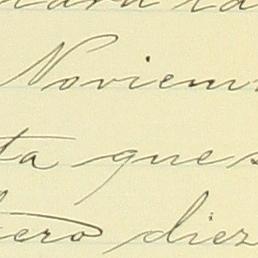 Noviem
ta que s
ero diez